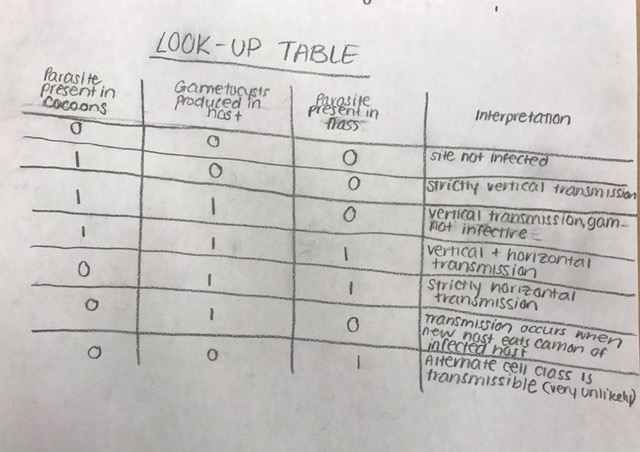 LOOK-UP TABLE
Parasite present in cocoons | Gametocysts produced in host | Parasite present in frass | Interpretation
0 | 0 | 0 | site not infected
1 | 0 | 0 | strictly vertical transmission
1 | 1 | 0 | vertical transmission, gam- not infective
1 | 1 | 1 | vertical + horizontal transmission
0 | 1 | 1 | strictly horizontal transmission
0 | 1 | 0 | transmission occurs when new host eats carrion of infected host
0 | 0 | 1 | Alternate cell class is transmissible (very unlikely)